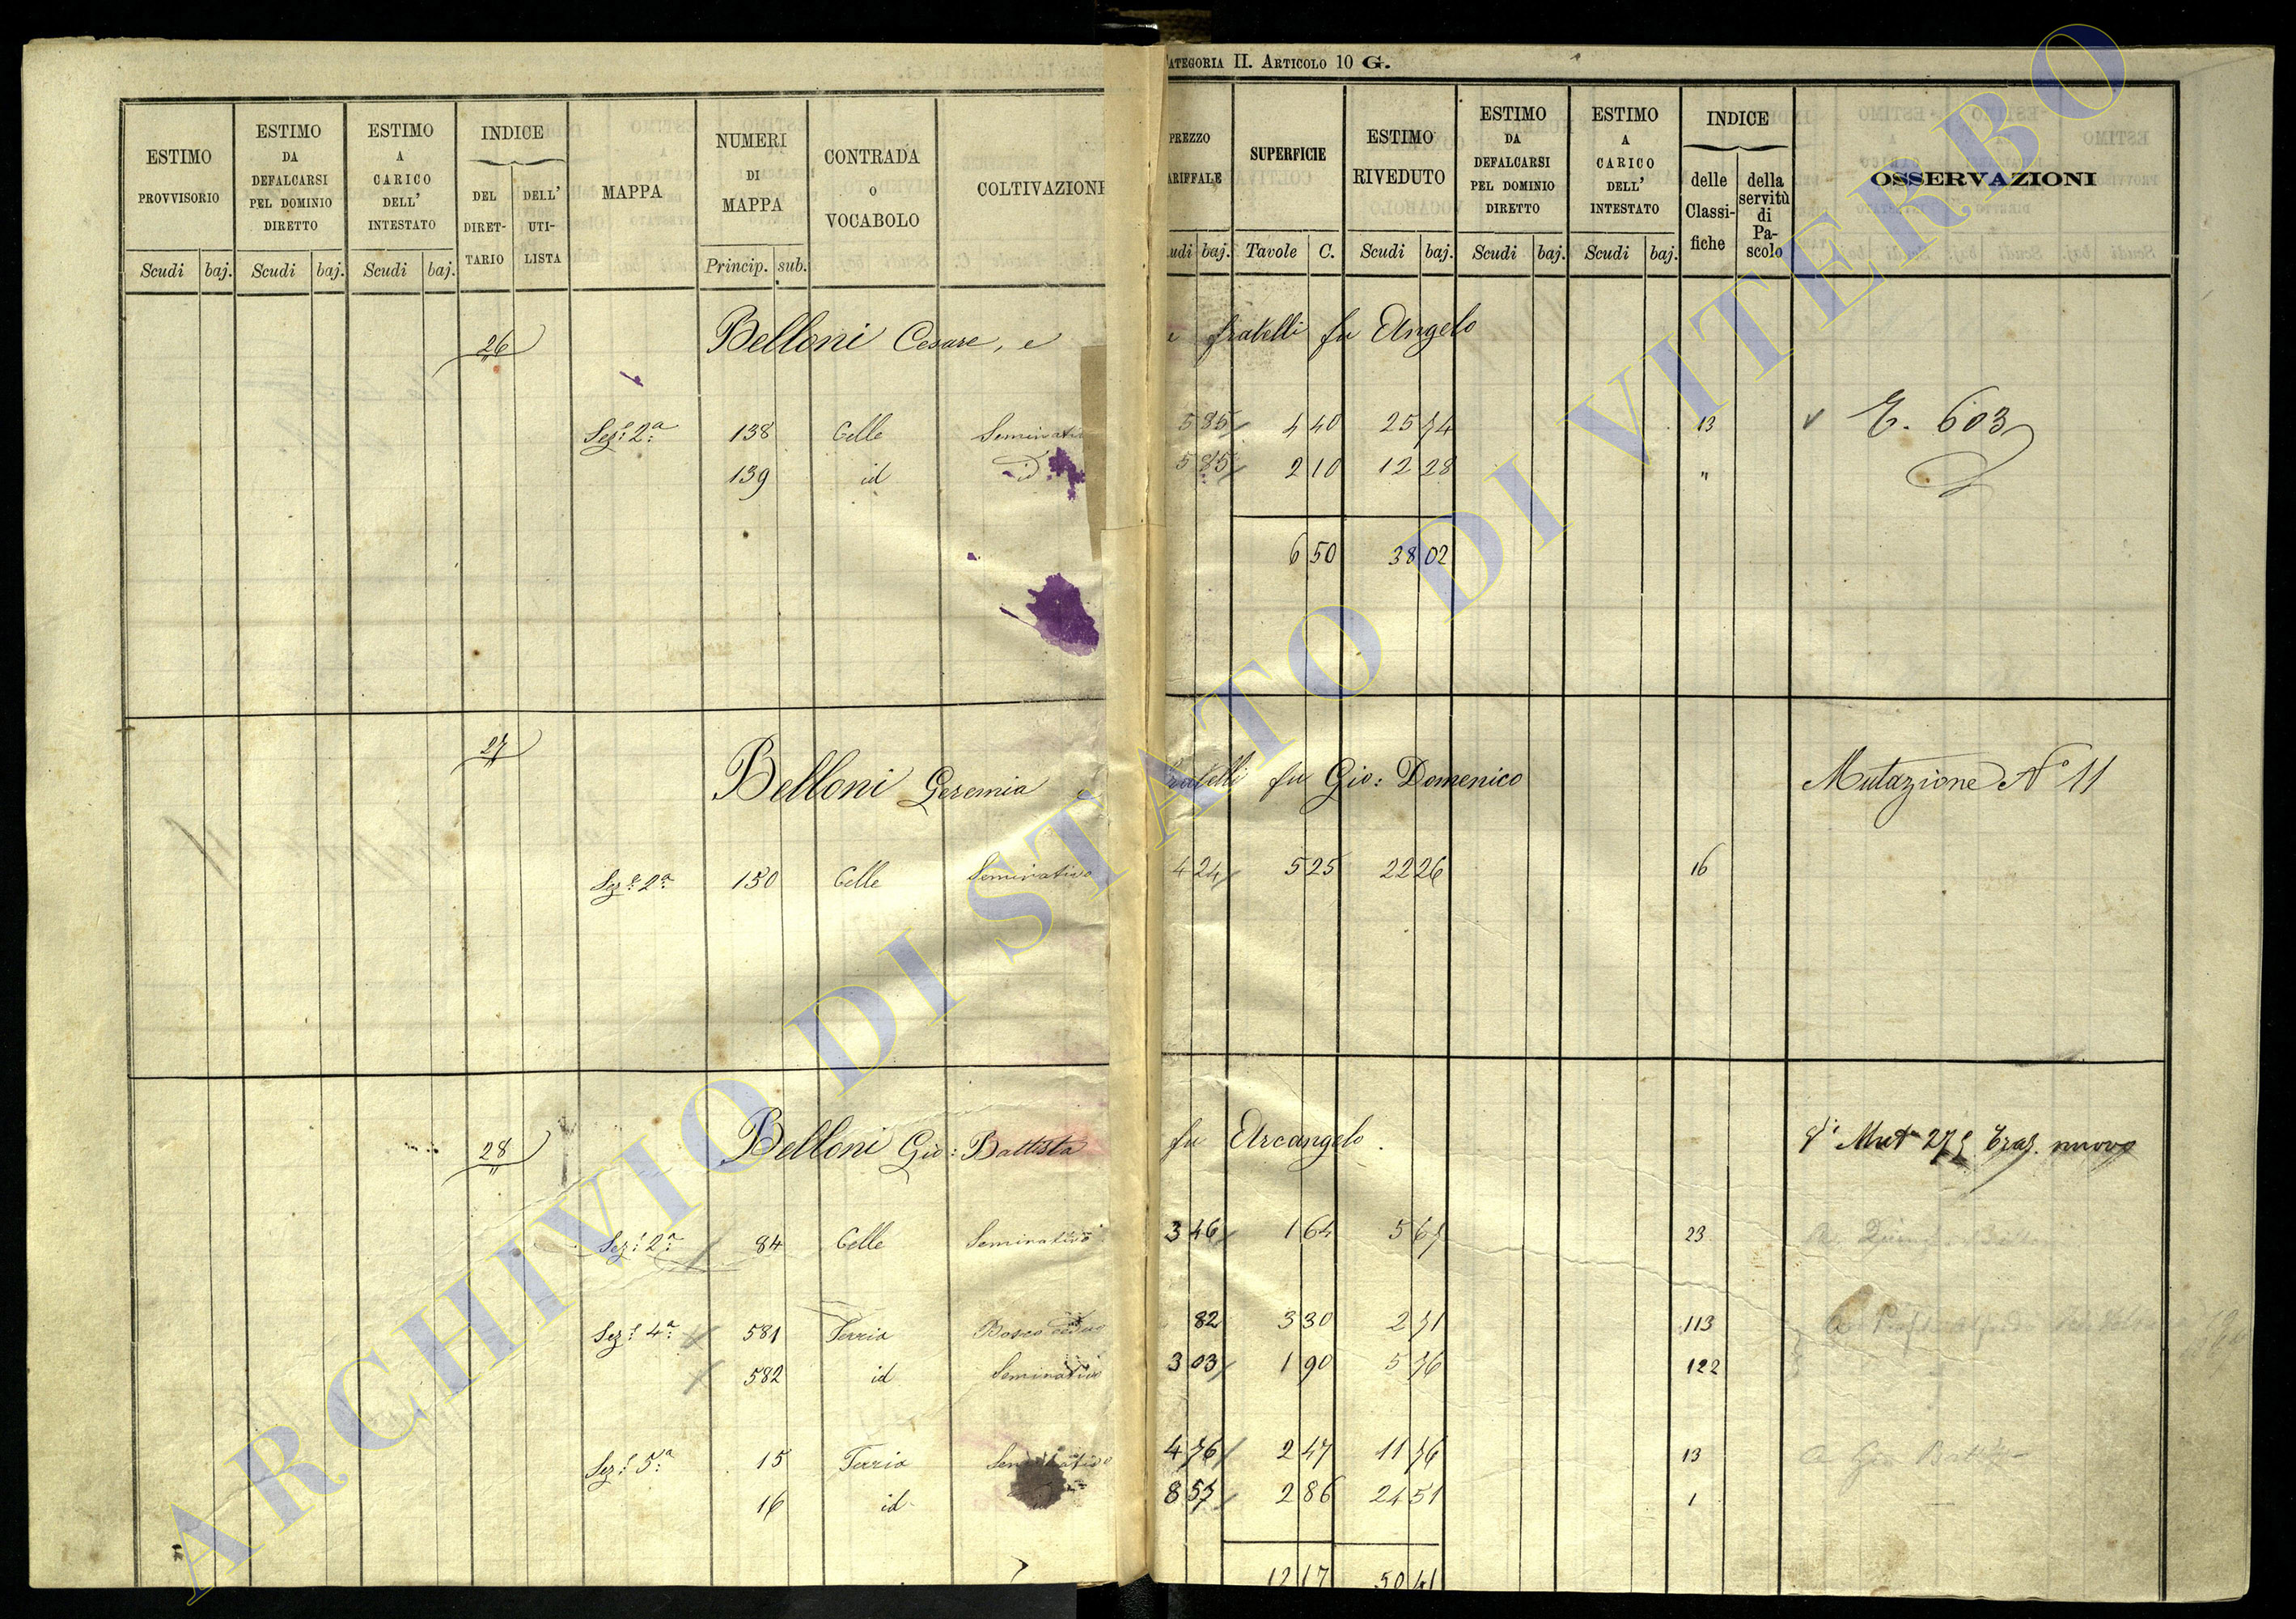 CATEGORIA II. ARTICOLO 10 G.
ESTIMO PROVVISORIO | ESTIMO DA DEFALCARSI PEL DOMINIO DIRETTO | ESTIMO A CARICO DELL' INTESTATO | INDICE DEL DIRET-TARIO | DELL' UTI-LISTA | MAPPA | NUMERI DI MAPPA | CONTRADA O VOCABOLO | COLTIVAZIONE | PREZZO TARIFFALE | SUPERFICIE | ESTIMO RIVEDUTO | ESTIMO DA DEFALCARSI PEL DOMINIO DIRETTO | ESTIMO A CARICO DELL' INTESTATO | INDICE delle Classi-fiche | della servitù di Pa-scolo | OSSERVAZIONI
Scudi | baj. | Scudi | baj. | Scudi | baj. | Princip. | sub. | Scudi | baj. | Tavole | C. | Scudi | baj. | Scudi | baj. | Scudi | baj.
26 Belloni Cesare, e fratelli fu Angelo
Sez.e 2a 138 Celle Seminativo 5 85 4 40 25 74 13 603
139 id id 5 85 2 10 12 28 "
6 50 38 02
27 Belloni Geremia e fratelli fu Gio: Domenico Mutazione No 11
Sez.e 2a 150 Celle Seminativo 4 24 5 25 22 26 16
28 Belloni Gio: Battista fu Arcangelo. Mut 275 nuovo
Sez.e 2a 84 Celle Seminativo 3 46 1 64 5 67 23
Sez.e 4a 581 Terria Bosco ceduo 82 3 30 2 71 113
582 id Seminativo 3 03 1 90 5 76 122
Sez.e 5a 15 Terria Seminativo 4 76 2 47 11 76 13 a Gio Batt
16 id 8 57 2 86 24 51 1
12 17 50 41
ARCHIVIO DI STATO DI VITERBO